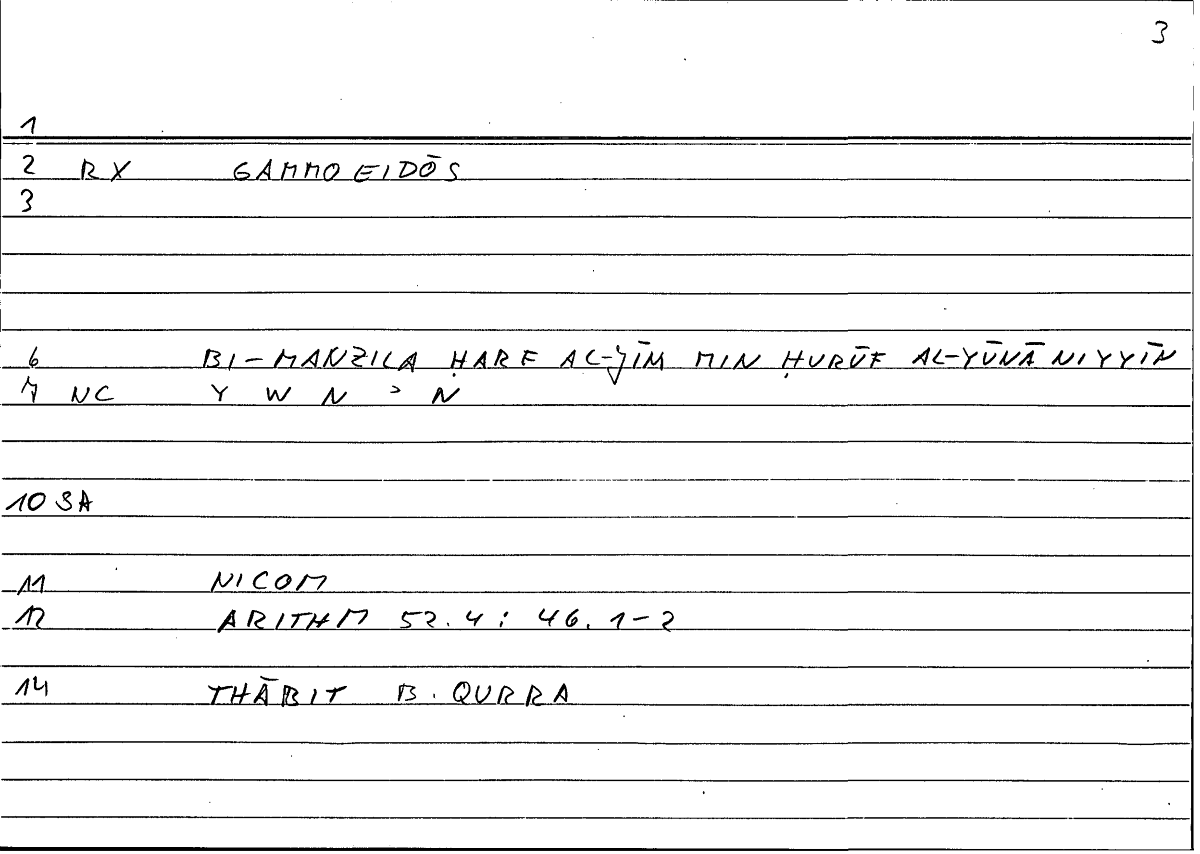 3
1
2 RX GAMMOEIDŌS
3
6 BI-MANZILA ḤARF AL-ǦĪM MIN ḤURŪF AL-YŪNĀNIYYĪN
7 NC Y W N ʾ N
10 SA
11 NICOM
12 ARITHM 52.4 : 46.1-2
14 THĀBIT B. QURRA